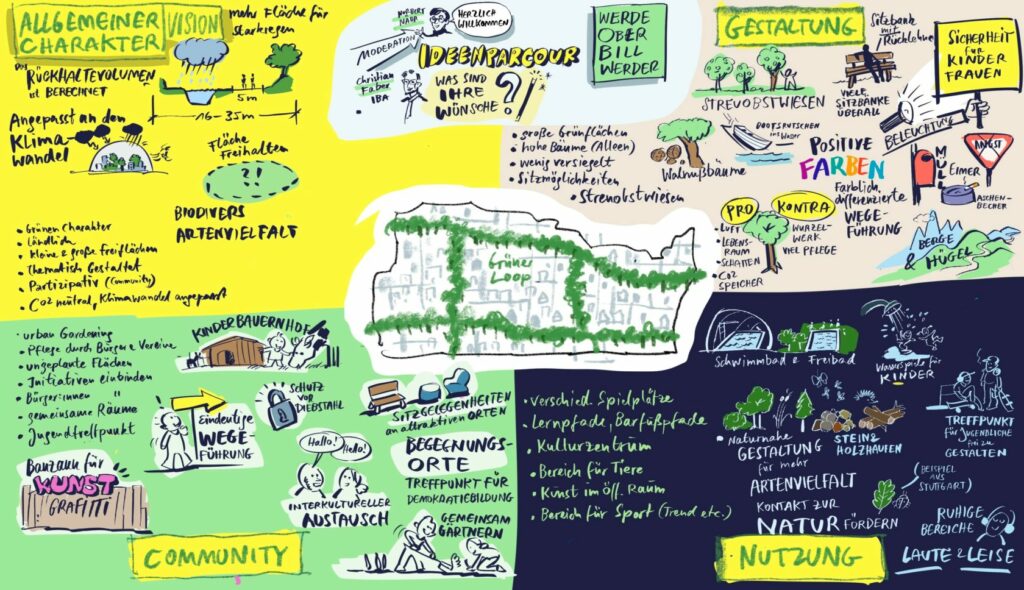 ALLGEMEINER
CHARAKTER
VISION
mehr Fläche für
Starkregen
Das
RÜCKHALTEVOLUMEN
ist BERECHNET
5m
16 - 35m
Angepasst an den
KLIMA
WANDEL
Fläche
Freihalten
?!
BIODIVERS
ARTENVIELFALT
• Grünen Charakter
• Ländlich
• kleine & große Freiflächen
• Thematisch Gestaltet
• Partizipativ (Community)
• CO2 neutral, Klimawandel angepasst
NORBERT
NÄHR
HERZLICH
WILLKOMMEN
MODERATION
IDEENPARCOUR
Christian
Faber
IBA
WAS SIND
IHRE
WÜNSCHE?
WERDE
OBER
BILL
WERDER
GESTALTUNG
Sitzbank
mit
Rücklehne
SICHERHEIT
für
KINDER
FRAUEN
STREUOBSTWIESEN
VIELE
SITZBÄNKE
ÜBERALL
BELEUCHTUNG
• große Grünflächen
• hohe Bäume (Alleen)
• wenig versiegelt
• Sitzmöglichkeiten
• Streuobstwiesen
Walnußbäume
BOOTSRUTSCHEN
ins Wasser
POSITIVE
FARBEN
Farblich
differenzierte
WEGE-
FÜHRUNG
MÜLL
EIMER
ANGST
ASCHEN-
BECHER
PRO
KONTRA
• LUFT
• LEBENS-
RAUM
• SCHATTEN
• CO2
SPEICHER
WURZEL-
WERK
VIEL PFLEGE
BERGE
&
HÜGEL
Grüner
Loop
• urban Gardening
• Pflege durch Bürger & Vereine
• ungeplante Flächen
• Initiativen einbinden
• Bürger:innen "
• gemeinsame Räume
• Jugendtreffpunkt
KINDERBAUERNHOF
Eindeutige
WEGE-
FÜHRUNG
SCHUTZ
VOR
DIEBSTAHL
SITZGELEGENHEITEN
an attraktiven ORTEN
Bauzaun für
KUNST
GRAFITTI
Hallo!
Hello!
INTERKULTURELLER
AUSTAUSCH
BEGEGNUNGS-
ORTE
TREFFPUNKT FÜR
DEMOKRATIEBILDUNG
GEMEINSAM
GÄRTNERN
COMMUNITY
• Verschied. Spielplätze
• Lernpfade, Barfußpfade
• Kulturzentrum
• Bereich für Tiere
• Kunst im öff. Raum
• Bereich für Sport (Trend etc.)
Schwimmbad & Freibad
Wasserspiele für
KINDER
• Naturnahe
GESTALTUNG
für mehr
ARTENVIELFALT
STEIN &
HOLZHAUFEN
TREFFPUNKT
für JUGENDLICHE
frei zu
GESTALTEN
KONTAKT ZUR
NATUR FÖRDERN
(BEISPIEL
AUS
STUTTGART)
RUHIGE
BEREICHE
LAUTE & LEISE
NUTZUNG